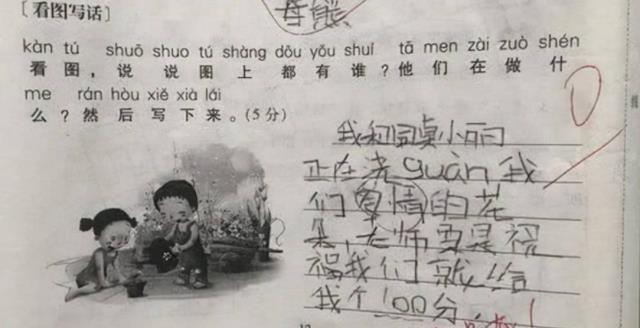 母熊
[看图写话]
kàn tú shuō shuo tú shàng dōu yǒu shuí tā men zài zuò shén
看图，说说图上都有谁？他们在做什
me rán hòu xiě xià lái
么？然后写下来。(5分)
0
我和同桌小丽
正在浇guàn我
们爱情的花
朵，老师要是祝
福我们就给
我个100分，